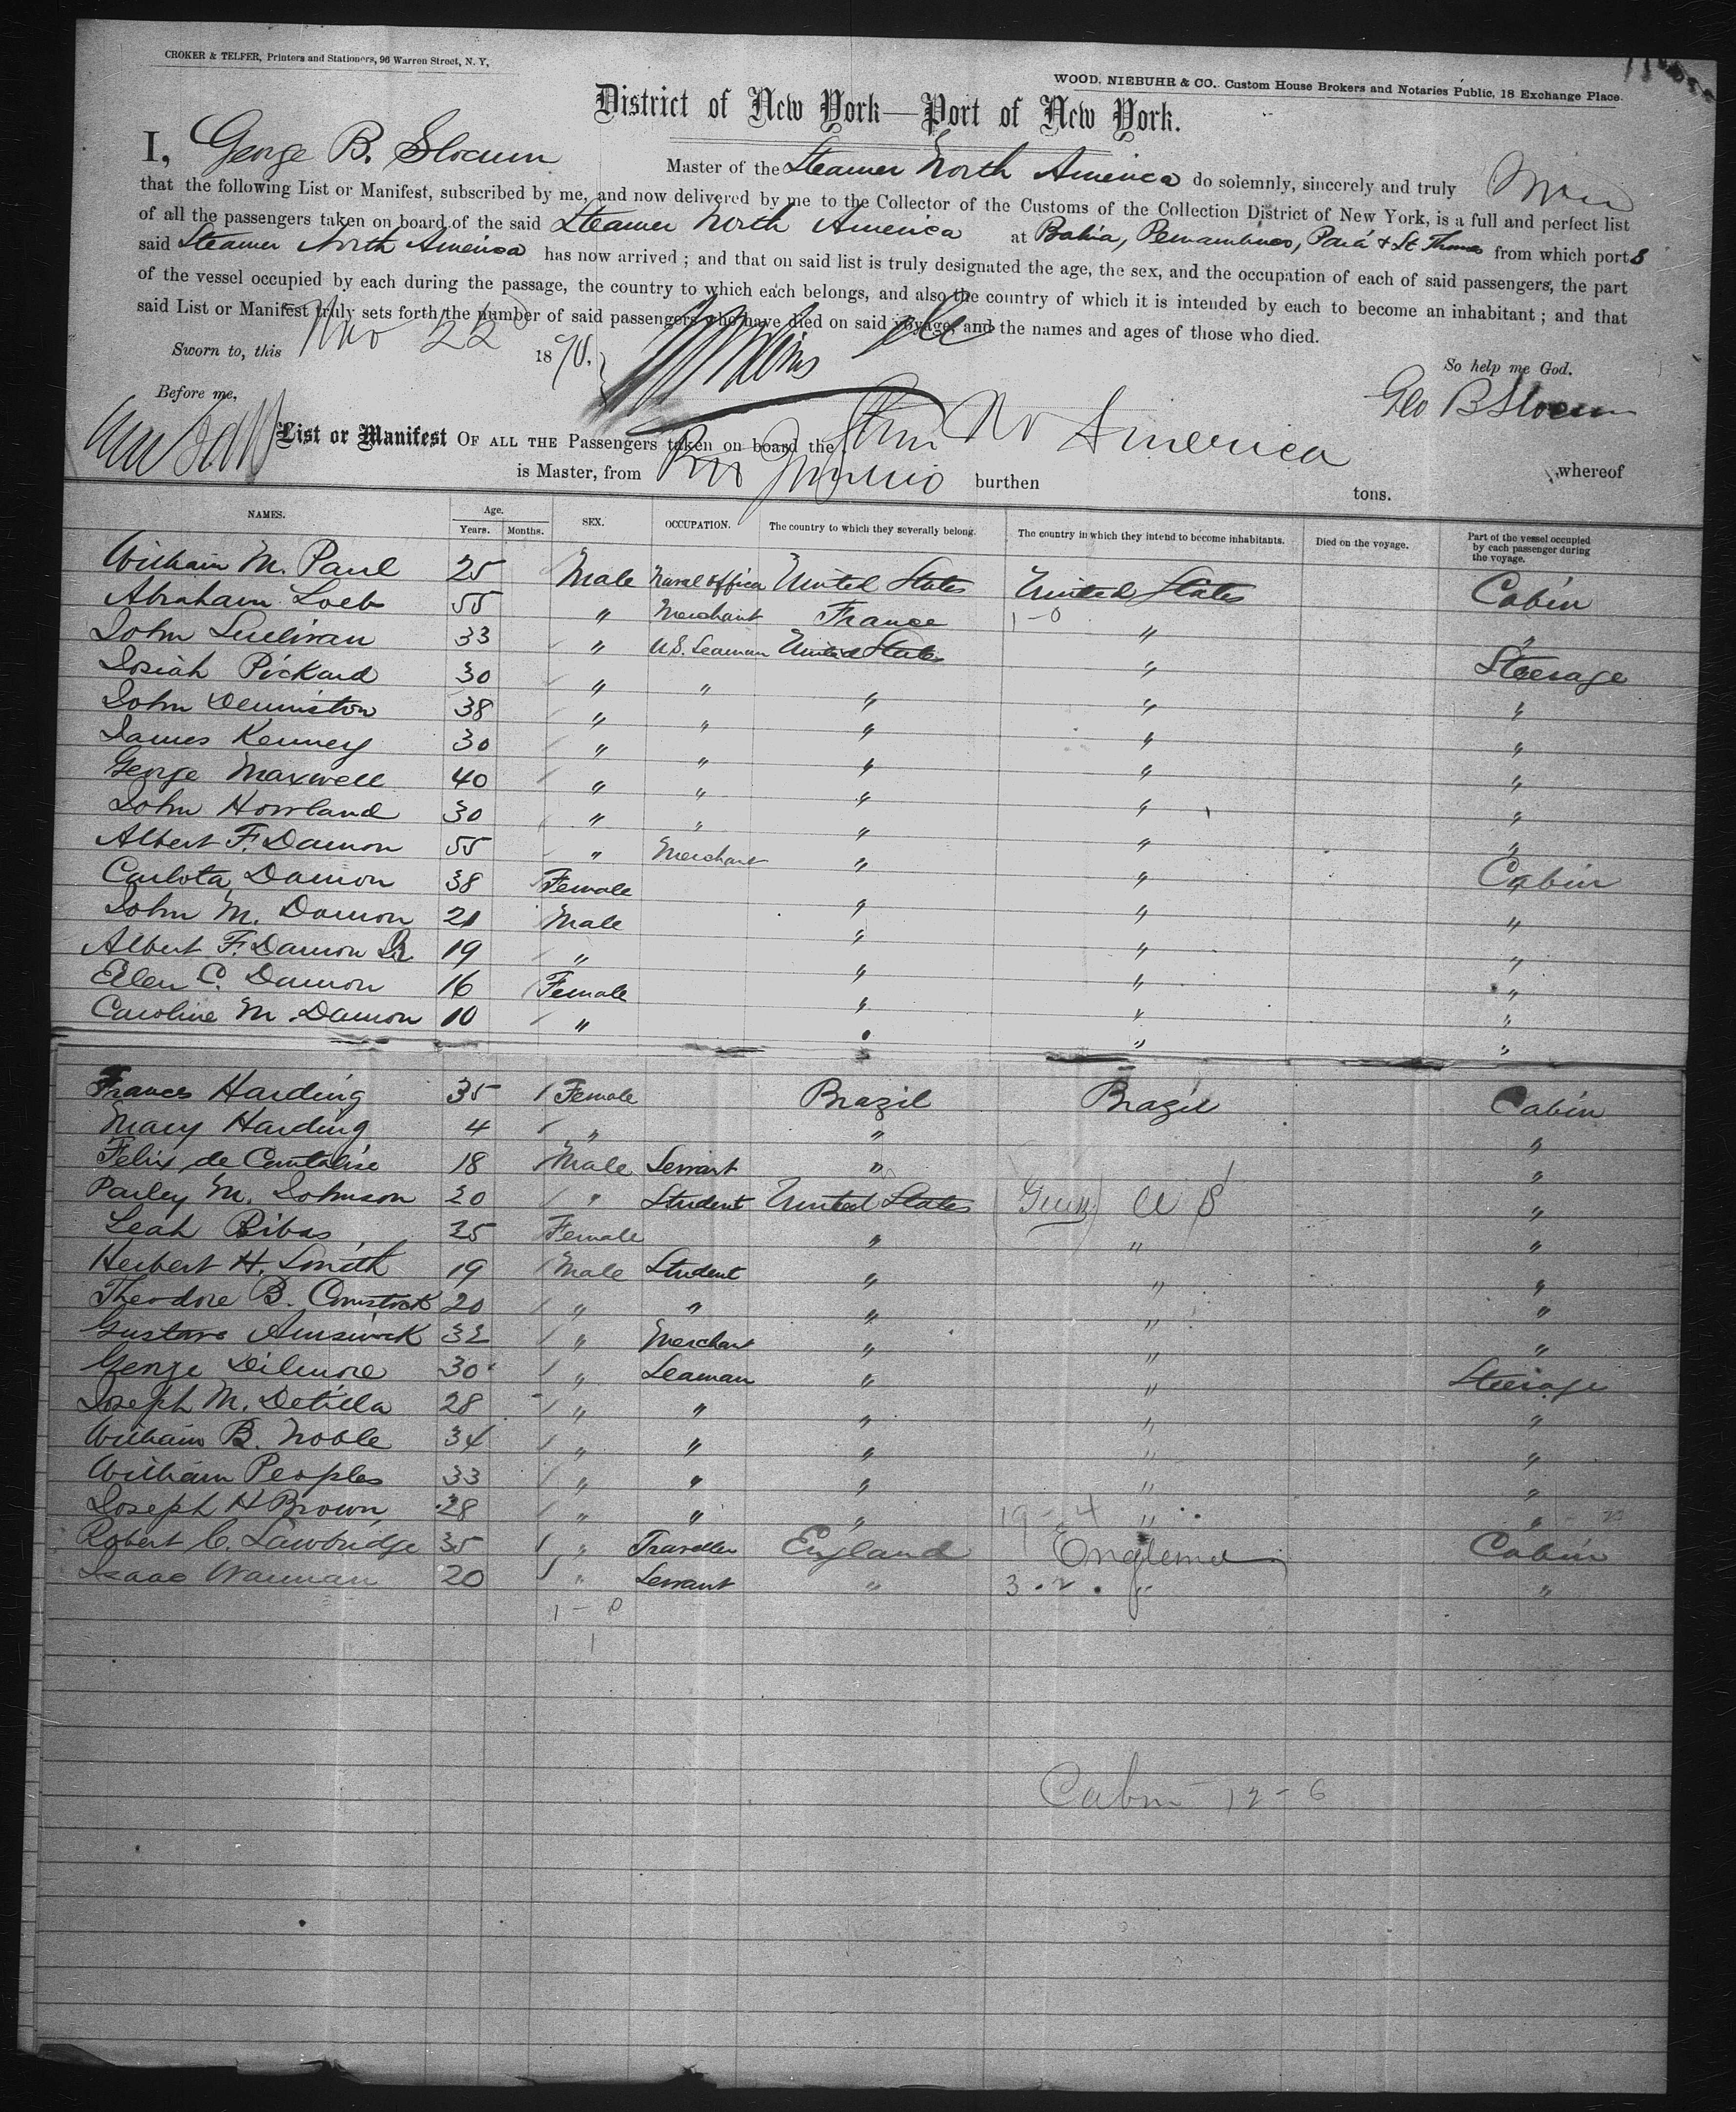 CROKER & TELFER, Printers and Stationers, 96 Warren Street, N. Y,
WOOD, NIEBUHR & CO., Custom House Brokers and Notaries Public, 18 Exchange Place.
District of New York—Port of New York.
I, George B. Slocum Master of the Steamer North America do solemnly, sincerely and truly
that the following List or Manifest, subscribed by me, and now delivered by me to the Collector of the Customs of the Collection District of New York, is a full and perfect list
of all the passengers taken on board of the said Steamer North America at Bahia, Pernambuco, Pará & St Thomas from which ports
said Steamer North America has now arrived ; and that on said list is truly designated the age, the sex, and the occupation of each of said passengers, the part
of the vessel occupied by each during the passage, the country to which each belongs, and also the country of which it is intended by each to become an inhabitant ; and that
said List or Manifest truly sets forth the number of said passengers who have died on said voyage, and the names and ages of those who died.
Sworn to, this Nov 22 1870. So help me God.
Before me, Geo B Slocum
List or Manifest OF ALL THE Passengers taken on board the Stmr No America whereof
is Master, from Rio Janeiro burthen tons.
NAMES. Age. Years. Months. SEX. OCCUPATION. The country to which they severally belong. The country in which they intend to become inhabitants. Died on the voyage. Part of the vessel occupied by each passenger during the voyage.
William M. Paul 25 Male Naval Officer United States United States Cabin
Abraham Loeb 55 " Merchant France 1-0 " "
John Sullivan 33 " U.S. Seaman United States " Steerage
Josiah Pickard 30 " " " " "
John Denniston 38 " " " " "
James Kenney 30 " " " " "
George Maxwell 40 " " " " "
John Howland 30 " " " " "
Albert F. Damon 55 " Merchant " " Cabin
Carlota Damon 38 Female " " "
John M. Damon 21 Male " " "
Albert F. Damon Jr 19 " " " "
Ellen C. Damon 16 Female " " "
Caroline M. Damon 10 " " " "
Frances Harding 35 Female Brazil Brazil Cabin
Mary Harding 4 " " "
Felix de 18 Male Servant " "
Parley M. Johnson 20 " Student United States U S "
Leah Ribas 25 Female " " "
Herbert H. Smith 19 Male Student " " "
Theodore B. Comstock 20 " " " " "
Gustave Amsinck 32 " Merchant " " "
George Dilmore 30 " Seaman " " Steerage
Joseph M. Detilla 28 " " " " "
William B. Noble 34 " " " " "
William Peoples 33 " " " " "
Joseph H Brown 28 " " " 19-4 " "
Robert C. Lawbridge 35 " Traveller England England Cabin
Isaac Warman 20 " Servant " 3.2. " "
1-0
1
Cabin 12-6